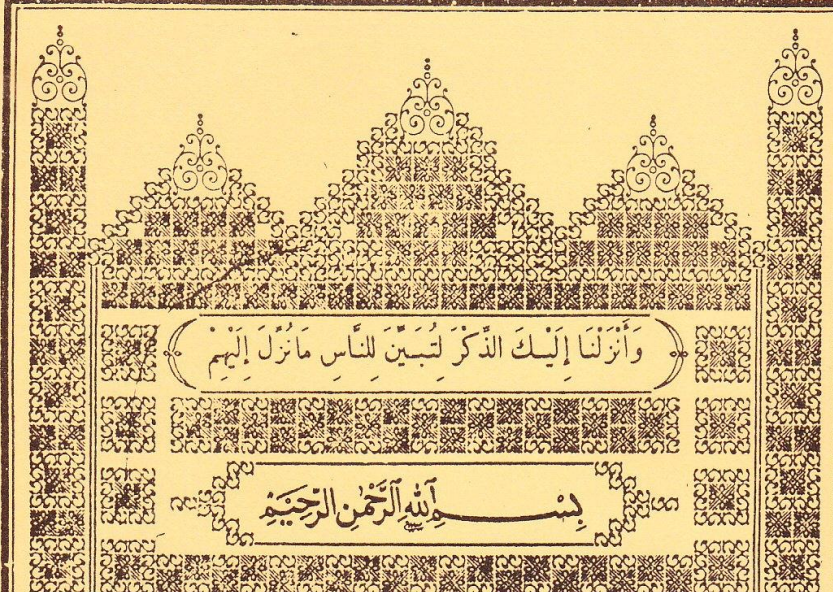 وَأَنْزَلْنَا إِلَيْكَ الذِّكْرَ لِتُبَيِّنَ لِلنَّاسِ مَانُزِّلَ إِلَيْهِمْ
بِسْمِ ٱللهِ ٱلرَّحْمٰنِ الرَّحِيْمِ